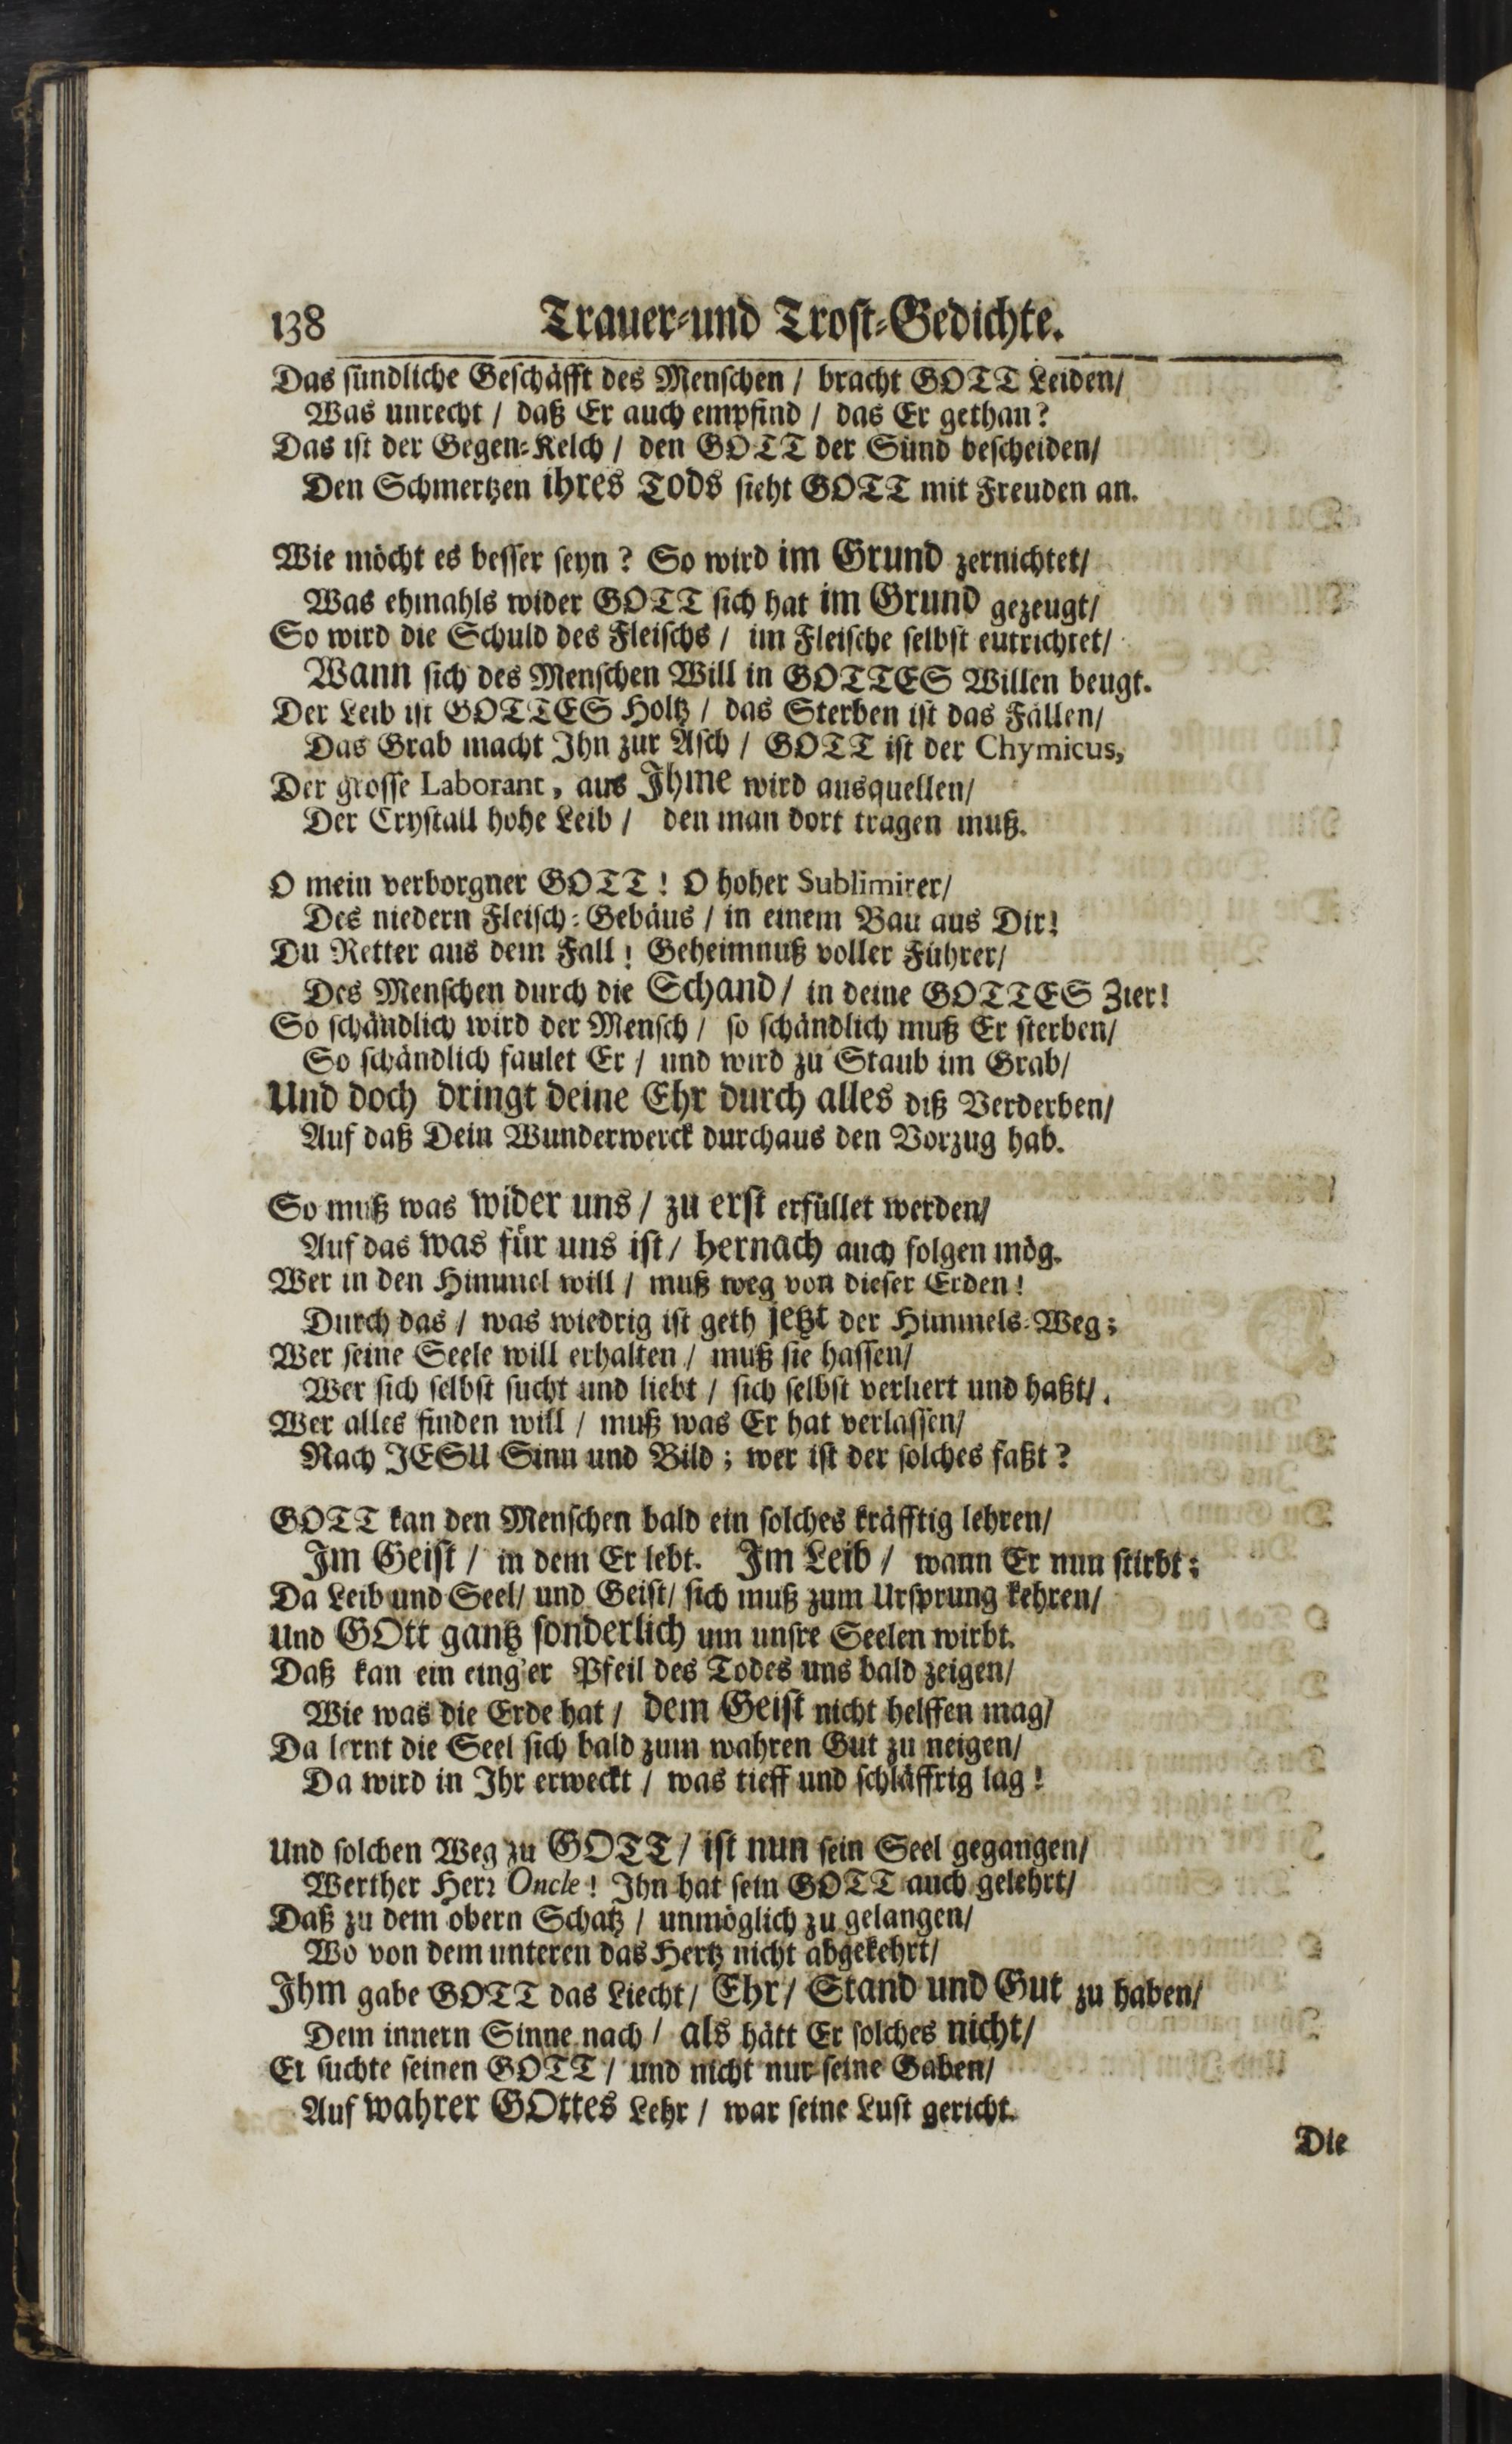 138 Trauer-und Trost-Gedichte.
Das sündliche Geschäfft des Menschen / bracht GOTT Leiden/
Was unrecht / daß Er auch empfind / das Er gethan?
Das ist der Gegen-Kelch / den GOTT der Sünd bescheiden/
Den Schmertzen ihres Tods sieht GOTT mit Freuden an.
Wie möcht es besser seyn? So wird im Grund zernichtet/
Was ehmahls wider GOTT sich hat im Grund gezeugt/
So wird die Schuld des Fleischs / im Fleische selbst eutrichtet/
Wann sich des Menschen Will in GOTTES Willen beugt.
Der Leib ist GOTTES Holtz / das Sterben ist das Fällen/
Das Grab macht Ihn zur Asch / GOTT ist der Chymicus,
Der grosse Laborant, aus Ihme wird ausquellen/
Der Crystall hohe Leib / den man dort tragen muß.
O mein verborgner GOTT! O hoher Sublimirer/
Des niedern Fleisch-Gebäus / in einem Bau aus Dir!
Du Retter aus dem Fall! Geheimnuß voller Führer/
Des Menschen durch die Schand / in deine GOTTES Zier!
So schändlich wird der Mensch / so schändlich muß Er sterben/
So schändlich faulet Er / und wird zu Staub im Grab/
Und doch dringt deine Ehr durch alles diß Verderben/
Auf daß Dein Wunderwerck durchaus den Vorzug hab.
So muß was wider uns / zu erst erfüllet werden/
Auf das was für uns ist / hernach auch folgen mög.
Wer in den Himmel will / muß weg von dieser Erden!
Durch das / was wiedrig ist geth jetzt der Himmels-Weg;
Wer seine Seele will erhalten / muß sie hassen/
Wer sich selbst sucht und liebt / sich selbst verliert und haßt/.
Wer alles finden will / muß was Er hat verlassen/
Nach JESU Sinn und Bild; wer ist der solches faßt?
GOTT kan den Menschen bald ein solches kräfftig lehren/
Im Geist / in dem Er lebt. Im Leib / wann Er nun stirbt:
Da Leib und Seel/ und Geist/ sich muß zum Ursprung kehren/
Und GOtt gantz sonderlich um unsre Seelen wirbt.
Daß kan ein eing'er Pfeil des Todes uns bald zeigen/
Wie was die Erde hat / dem Geist nicht helffen mag/
Da lernt die Seel sich bald zum wahren Gut zu neigen/
Da wird in Ihr erweckt / was tieff und schläffrig lag!
Und solchen Weg zu GOTT / ist nun sein Seel gegangen/
Werther Herr Oncle! Ihn hat sein GOTT auch gelehrt/
Daß zu dem obern Schatz / unmöglich zu gelangen/
Wo von dem unteren das Hertz nicht abgekehrt/
Ihm gabe GOTT das Liecht/ Ehr/ Stand und Gut zu haben/
Dem innern Sinne nach / als hätt Er solches nicht/
Er suchte seinen GOTT / und nicht nur seine Gaben/
Auf wahrer GOttes Lehr / war seine Lust gericht.
Die